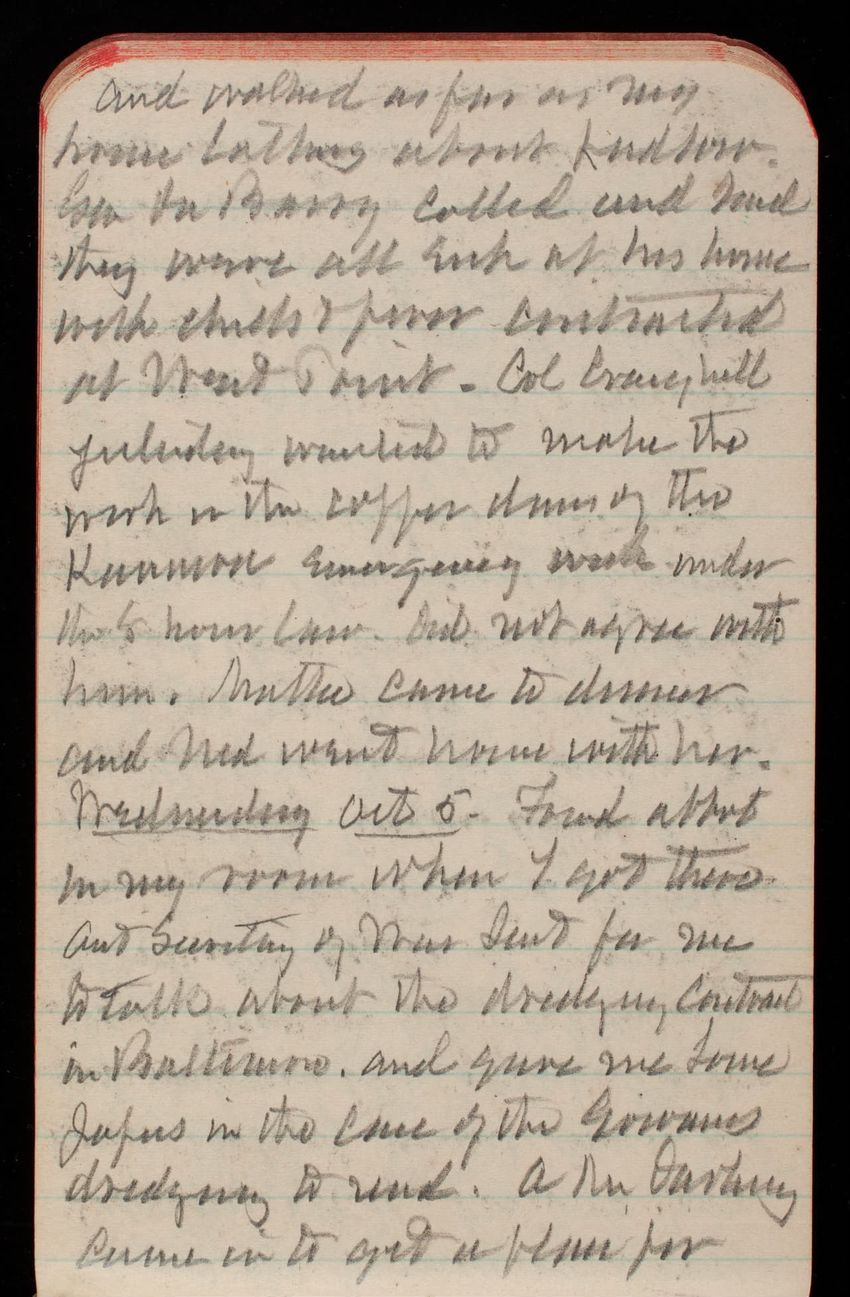 and walked as far as my
home talking about Ludlow.
Genl Du Barry called and said
they were all sick at his house
with chills & fever contracted
at West Point. Col Craighill
yesterday wanted to make the
work in the coffer dams of the
Kanawha emergency work under
the 8 hour law. Did not agree with
him. Mattie came to dinner
and Ned went home with her.
Wednesday Oct 5. Found Abbot
in my room when I got there
and Secretary of War sent for me
to talk about the dredging contract
in Baltimore. and gave me some
papers in the case of the Gowanus
dredging to read. A Mr
came in to get a plan for